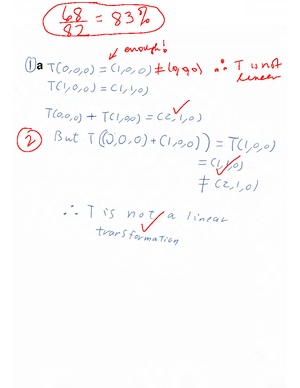 68/82 = 83%
enough!
① a T(0,0,0) = (1,0,0) ≠ (0,0,0) ∴ T is not linear
T(1,0,0) = (1,1,0)
T(0,0,0) + T(1,0,0) = (2,1,0) ✓
② But T((0,0,0) + (1,0,0)) = T(1,0,0)
= (1,1,0) ✓
≠ (2,1,0)
∴ T is not a linear
transformation ✓